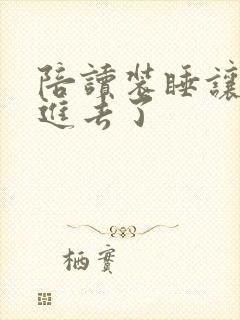 陪讀裝睡讓
進去了
栖實